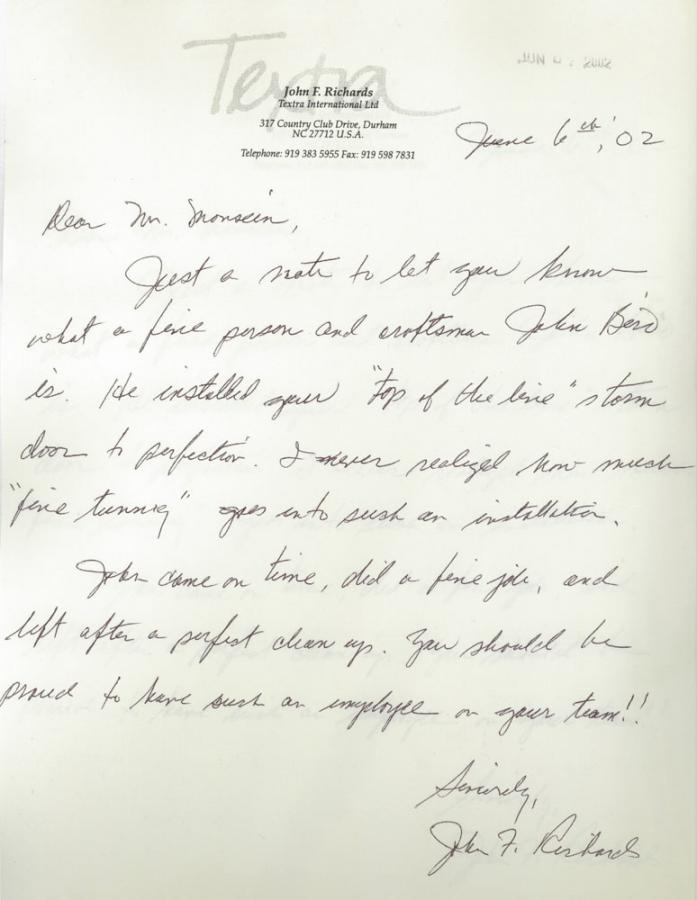 Textra
JUN 2002
John F. Richards
Textra International Ltd
317 Country Club Drive, Durham
NC 27712 U.S.A.
Telephone: 919 383 5955 Fax: 919 598 7831
June 6th, '02
Dear Mr. Monsein,
Just a note to let you know
what a fine person and craftsman John Bird
is. He installed your "top of the line" storm
door to perfection. I never realized how much
"fine tunning" goes into such an installation.
John came on time, did a fine job, and
left after a perfect clean up. You should be
proud to have such an employee on your team!!
Sincerely,
John F. Richards